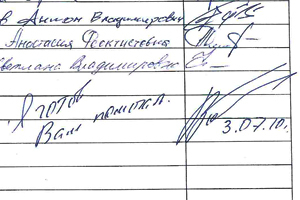 в Антон Владимирович
Анастасия Феоктистовна
Светлана Владимировна
Я готов
Вам помогал.
3.07.10г.